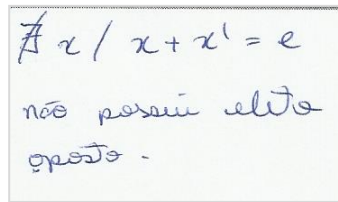 ∄ x / x + x' = e
não possui eleto
oposto.